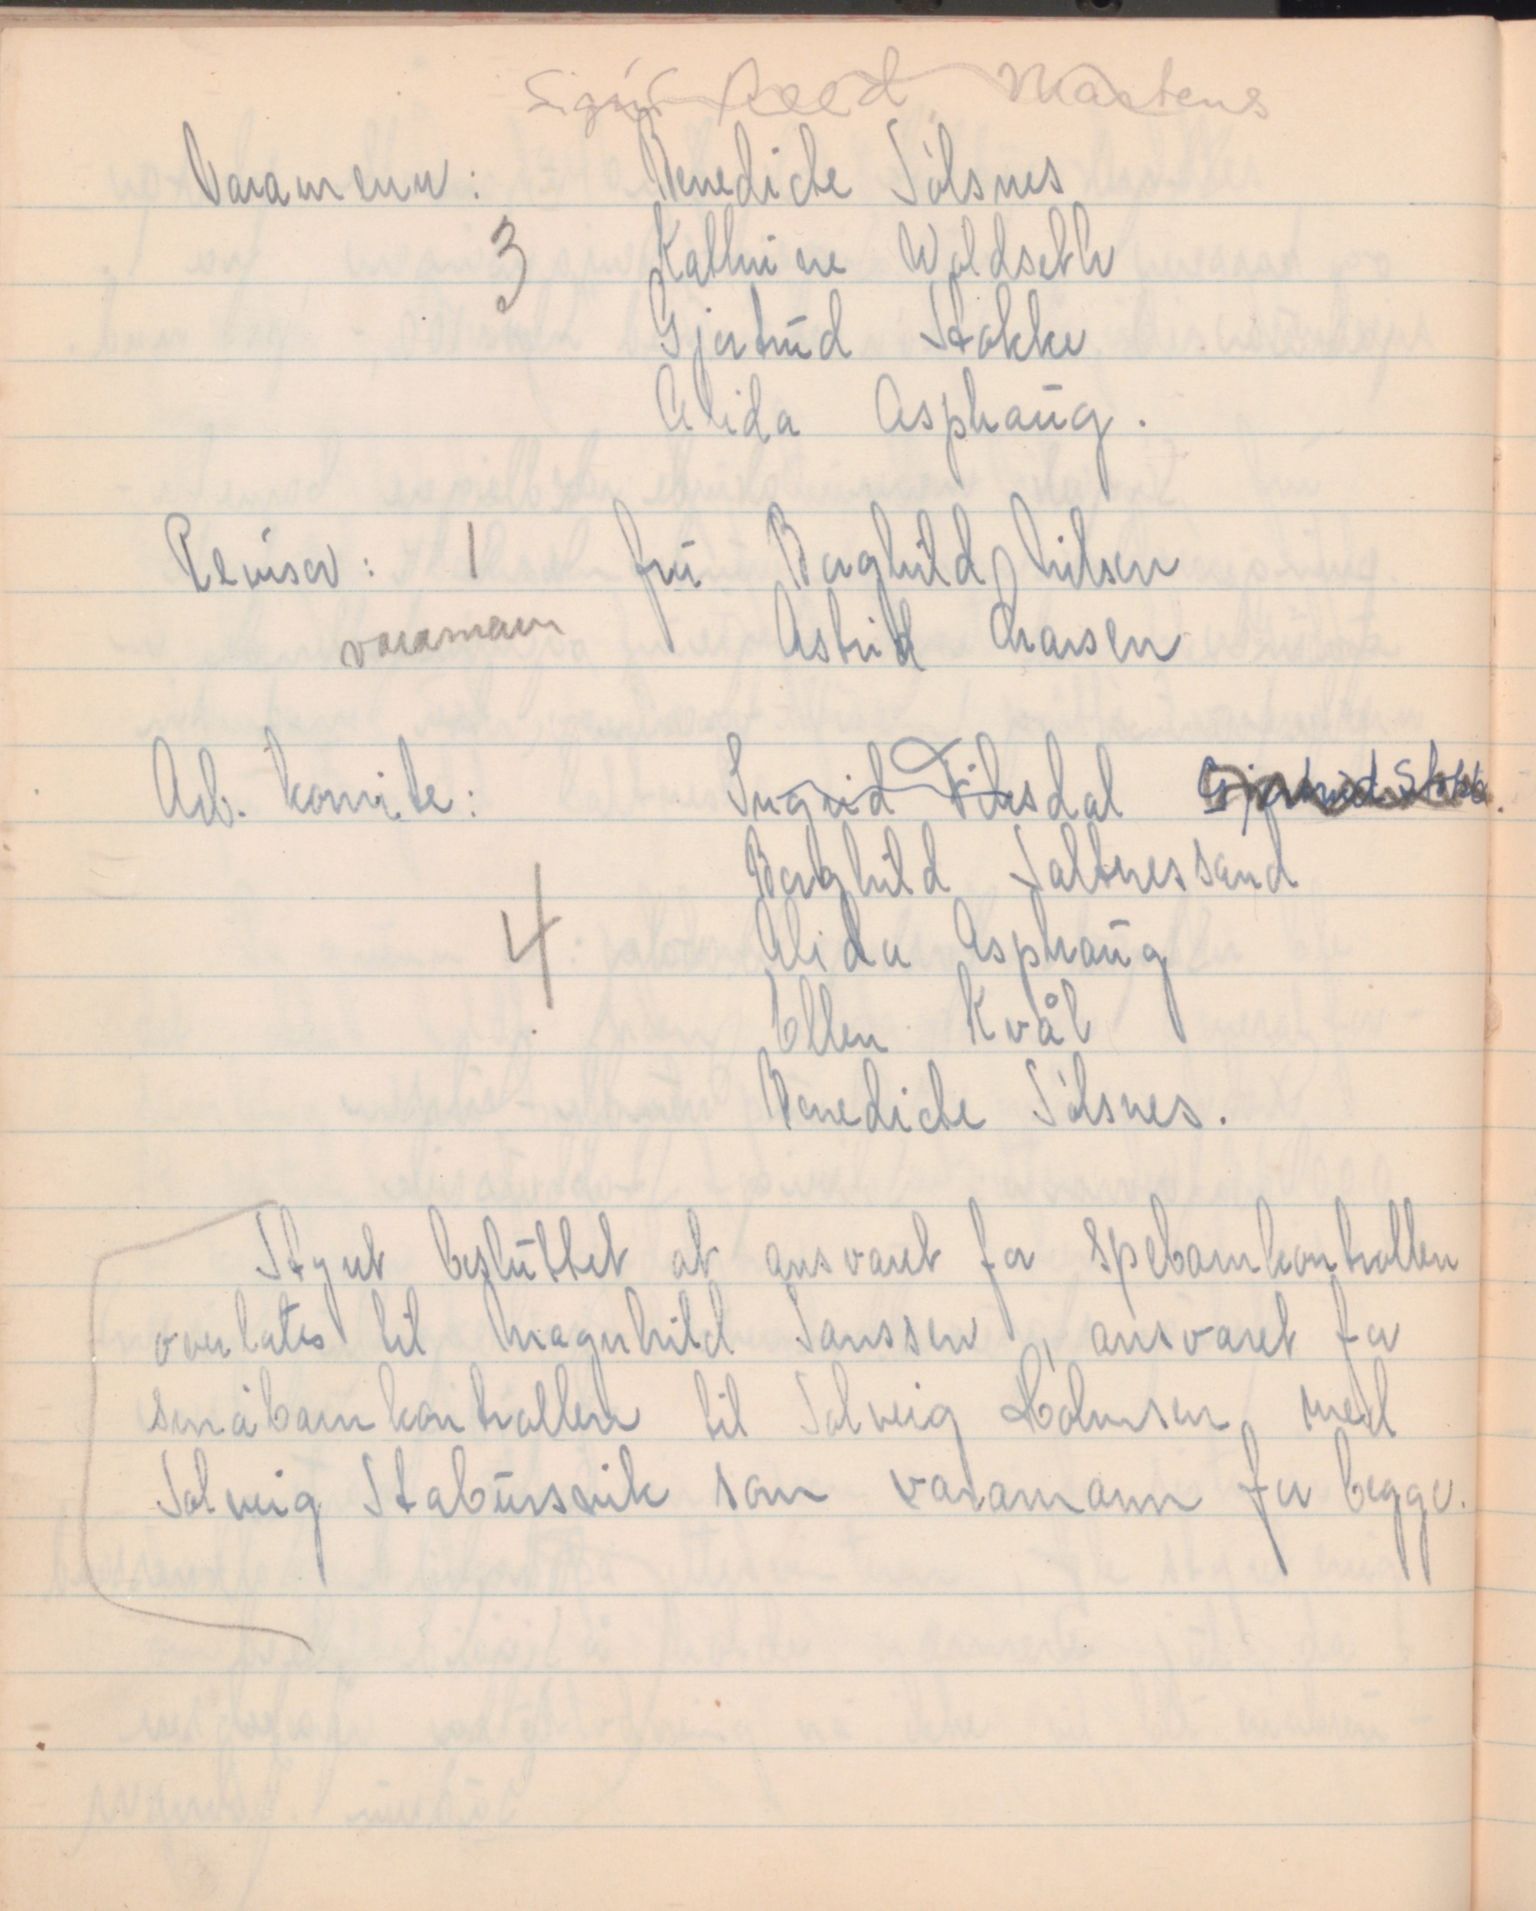 Varamenn: Benedicte Sólsnes
3 Kathrine Woldseth
Gjertrud Stokke
Alida Asphaug.
Revisor: 1 fru Borghild Nilsen
varamann Astrid Larsen
Arb. komite: Ingrid Filesdal Gjertrud Stokke.
Borghild Saltnessand
4 Alida Asphaug
Ellen Kvål
Benedicte Sólsnes.
Styret besluttet at ansvaret for spebarnkontrollen
overlates til Magnhild Janssen, ansvaret for
småbarnkontrollen til Solveig med
Solveig Stabursvik som varamann for begge.